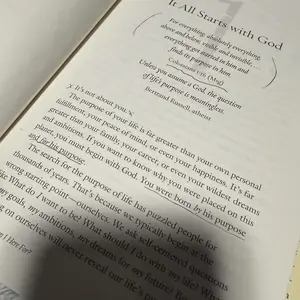 1
It All Starts with God
For everything, absolutely everything,
above and below, visible and invisible, ...
everything got started in him and
finds its purpose in him.
Colossians 1:16 (Msg)
Unless you assume a God, the question
of life's purpose is meaningless.
Bertrand Russell, atheist
It's not about you.
The purpose of your life is far greater than your own personal
fulfillment, your peace of mind, or even your happiness. It's far
greater than your family, your career, or even your wildest dreams
and ambitions. If you want to know why you were placed on this
planet, you must begin with God. You were born by his purpose
and for his purpose.
The search for the purpose of life has puzzled people for
thousands of years. That's because we typically begin at the
wrong starting point—ourselves. We ask self-centered questions
like What do I want to be? What should I do with my life? What
my goals, my ambitions, my dreams for my future? But
ng on ourselves will never reveal our life's
m I Here For?